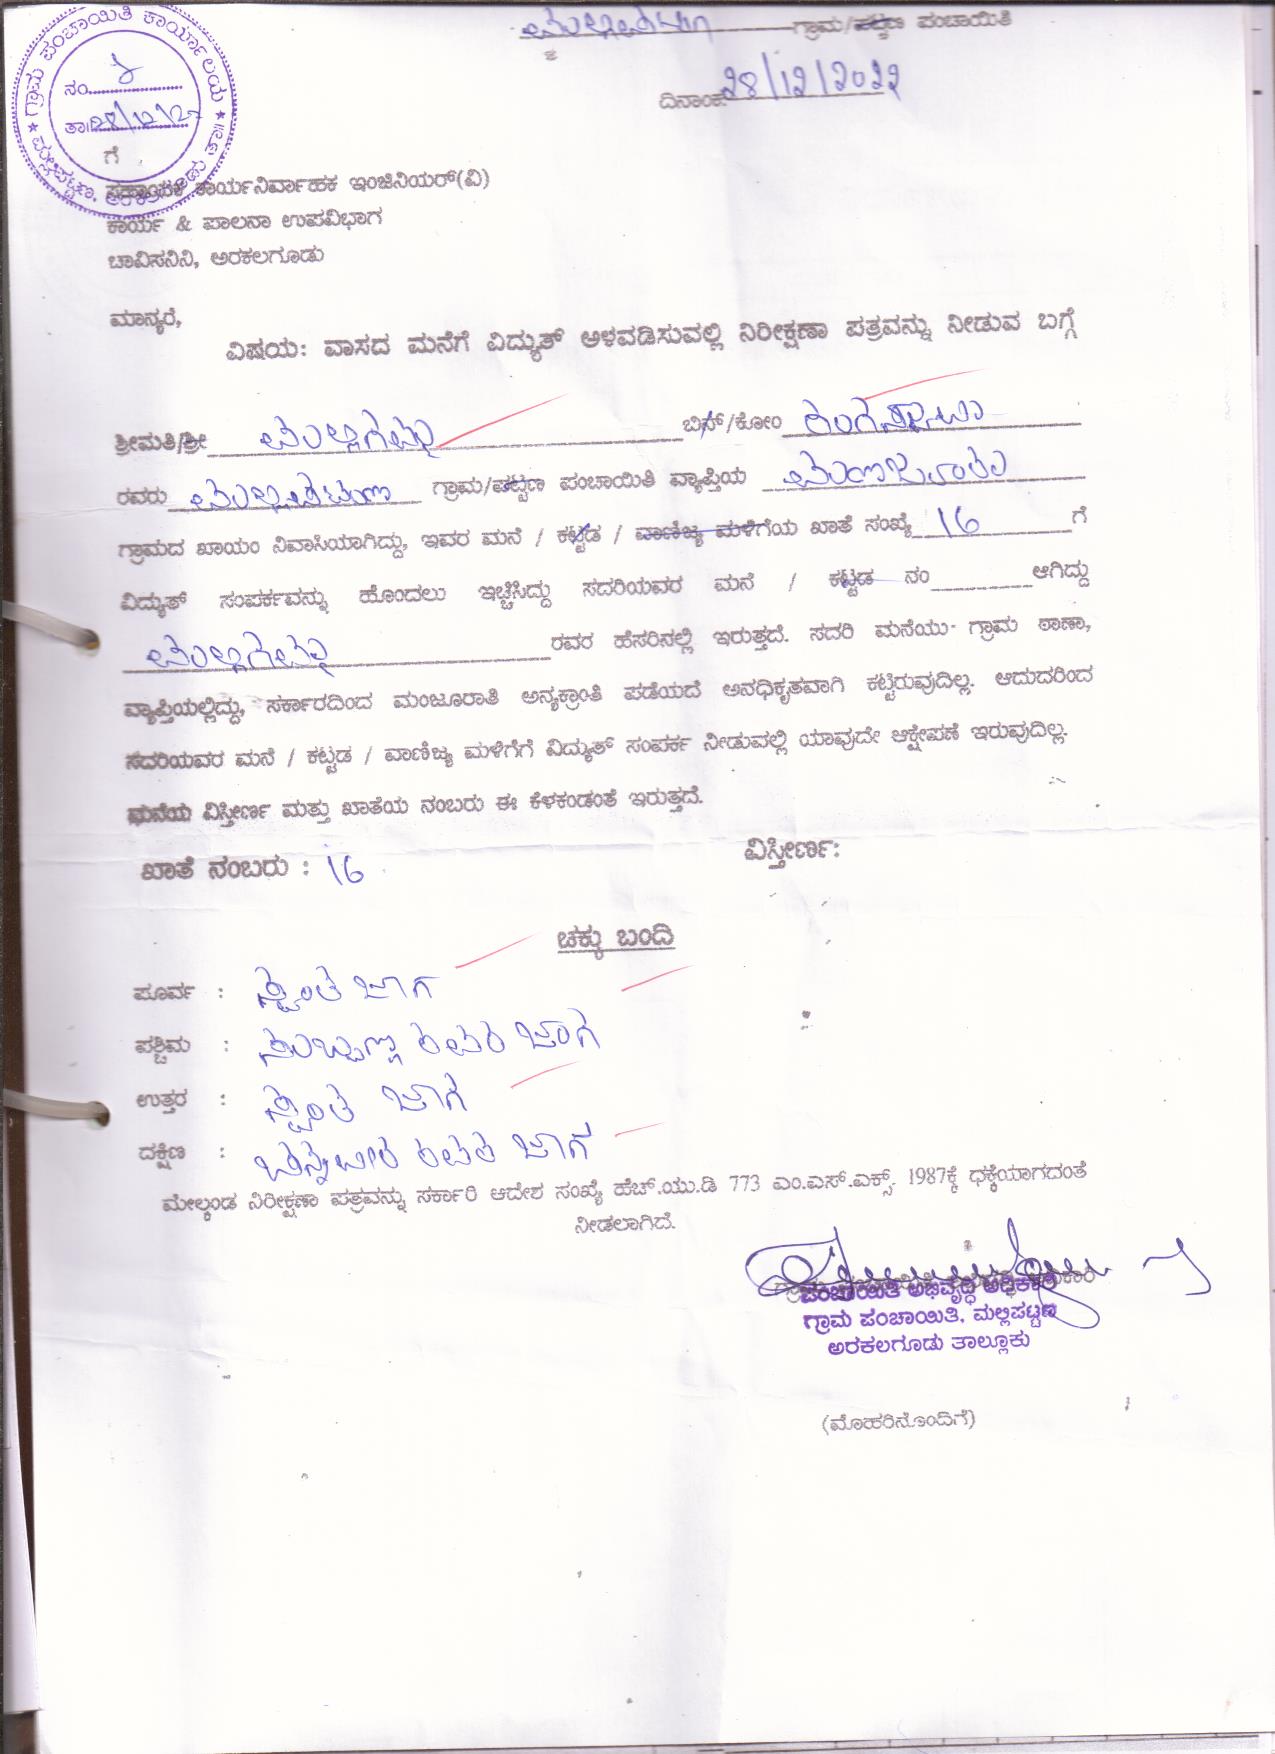 ಗ್ರಾಮ ಪಂಚಾಯಿತಿ ಕಾರ್ಯಾಲಯ
ನಂ
ತಾ 28/12/22
ಗ್ರಾಮ/ಪಟ್ಟಣ ಪಂಚಾಯಿತಿ
ದಿನಾಂಕ: 28/12/2022
ಗೆ
ಸಹಾಯಕ ಕಾರ್ಯನಿರ್ವಾಹಕ ಇಂಜಿನಿಯರ್(ವಿ)
ಕಾರ್ಯ & ಪಾಲನಾ ಉಪವಿಭಾಗ
ಚಾವಿಸನಿನಿ, ಅರಕಲಗೂಡು
ಮಾನ್ಯರೆ,
ವಿಷಯ: ವಾಸದ ಮನೆಗೆ ವಿದ್ಯುತ್ ಅಳವಡಿಸುವಲ್ಲಿ ನಿರೀಕ್ಷಣಾ ಪತ್ರವನ್ನು ನೀಡುವ ಬಗ್ಗೆ
ಶ್ರೀಮತಿ/ಶ್ರೀ ಮಲ್ಲಿಗಮ್ಮ ಬಿನ್/ಕೋಂ ರಂಗಸ್ವಾಮಿ
ರವರು ಮಲ್ಲಿಪಟ್ಟಣ ಗ್ರಾಮ/ಪಟ್ಟಣ ಪಂಚಾಯಿತಿ ವ್ಯಾಪ್ತಿಯ
ಗ್ರಾಮದ ಖಾಯಂ ನಿವಾಸಿಯಾಗಿದ್ದು, ಇವರ ಮನೆ / ಕಟ್ಟಡ / ವಾಣಿಜ್ಯ ಮಳಿಗೆಯ ಖಾತೆ ಸಂಖ್ಯೆ 16 ಗೆ
ವಿದ್ಯುತ್ ಸಂಪರ್ಕವನ್ನು ಹೊಂದಲು ಇಚ್ಚಿಸಿದ್ದು ಸದರಿಯವರ ಮನೆ / ಕಟ್ಟಡ ನಂ ಆಗಿದ್ದು
ಮಲ್ಲಿಗಮ್ಮ ರವರ ಹೆಸರಿನಲ್ಲಿ ಇರುತ್ತದೆ. ಸದರಿ ಮನೆಯು ಗ್ರಾಮ ಠಾಣಾ,
ವ್ಯಾಪ್ತಿಯಲ್ಲಿದ್ದು, ಸರ್ಕಾರದಿಂದ ಮಂಜೂರಾತಿ ಅನ್ಯಕ್ರಾಂತಿ ಪಡೆಯದೆ ಅನಧಿಕೃತವಾಗಿ ಕಟ್ಟಿರುವುದಿಲ್ಲ. ಆದುದರಿಂದ
ಸದರಿಯವರ ಮನೆ / ಕಟ್ಟಡ / ವಾಣಿಜ್ಯ ಮಳಿಗೆಗೆ ವಿದ್ಯುತ್ ಸಂಪರ್ಕ ನೀಡುವಲ್ಲಿ ಯಾವುದೇ ಆಕ್ಷೇಪಣೆ ಇರುವುದಿಲ್ಲ.
ಮನೆಯ ವಿಸ್ತೀರ್ಣ ಮತ್ತು ಖಾತೆಯ ನಂಬರು ಈ ಕೆಳಕಂಡಂತೆ ಇರುತ್ತದೆ.
ಖಾತೆ ನಂಬರು : 16 ವಿಸ್ತೀರ್ಣ:
ಚಕ್ಕು ಬಂದಿ
ಪೂರ್ವ : ಸ್ವಂತ ಜಾಗ
ಪಶ್ಚಿಮ : ಸುಬ್ಬಣ್ಣ ರವರ ಜಾಗ
ಉತ್ತರ : ಸ್ವಂತ ಜಾಗ
ದಕ್ಷಿಣ : ಚನ್ನವೀರ ರವರ ಜಾಗ
ಮೇಲ್ಕಂಡ ನಿರೀಕ್ಷಣಾ ಪತ್ರವನ್ನು ಸರ್ಕಾರಿ ಆದೇಶ ಸಂಖ್ಯೆ ಹೆಚ್.ಯು.ಡಿ 773 ಎಂ.ಎನ್.ಎಕ್ಸ್. 1987ಕ್ಕೆ ಧಕ್ಕೆಯಾಗದಂತೆ
ನೀಡಲಾಗಿದೆ.
ಪಂಚಾಯಿತಿ ಅಭಿವೃದ್ಧಿ ಅಧಿಕಾರಿ
ಗ್ರಾಮ ಪಂಚಾಯಿತಿ, ಮಲ್ಲಿಪಟ್ಟಣ
ಅರಕಲಗೂಡು ತಾಲ್ಲೂಕು
(ಮೊಹರಿನೊಂದಿಗೆ)